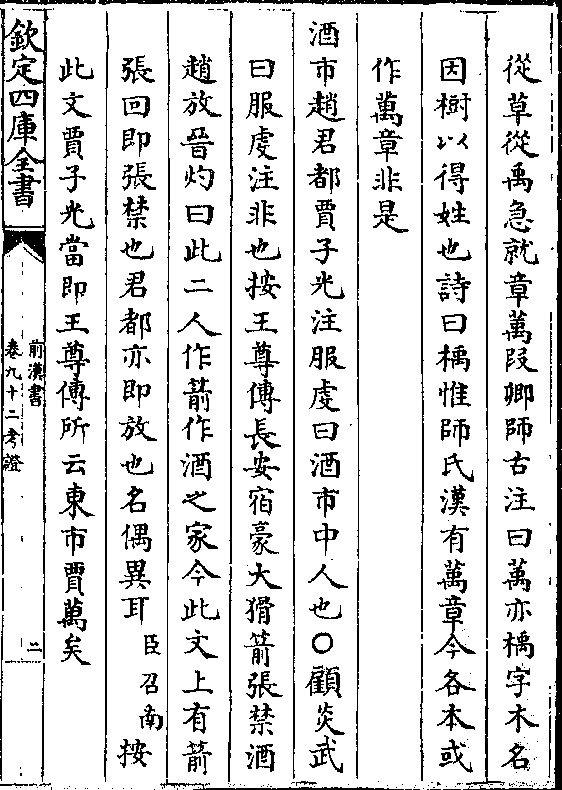 從草從禹急就章萬段卿師古注曰萬亦楀字木名
因樹以得姓也詩曰楀惟師氏漢有萬章今各本或
作萬章非是
酒市趙君都賈子光注服虔曰酒市中人也○顧炎武
曰服虔注非也按王尊傳長安宿豪大猾箭張禁酒
趙放晉灼曰此二人作箭作酒之家今此文上有箭
張回即張禁也君都亦即放也名偶異耳臣召南按
此文賈子光當即王尊傳所云東市賈萬矣
欽定四庫全書
前漢書
卷九十二考證
二